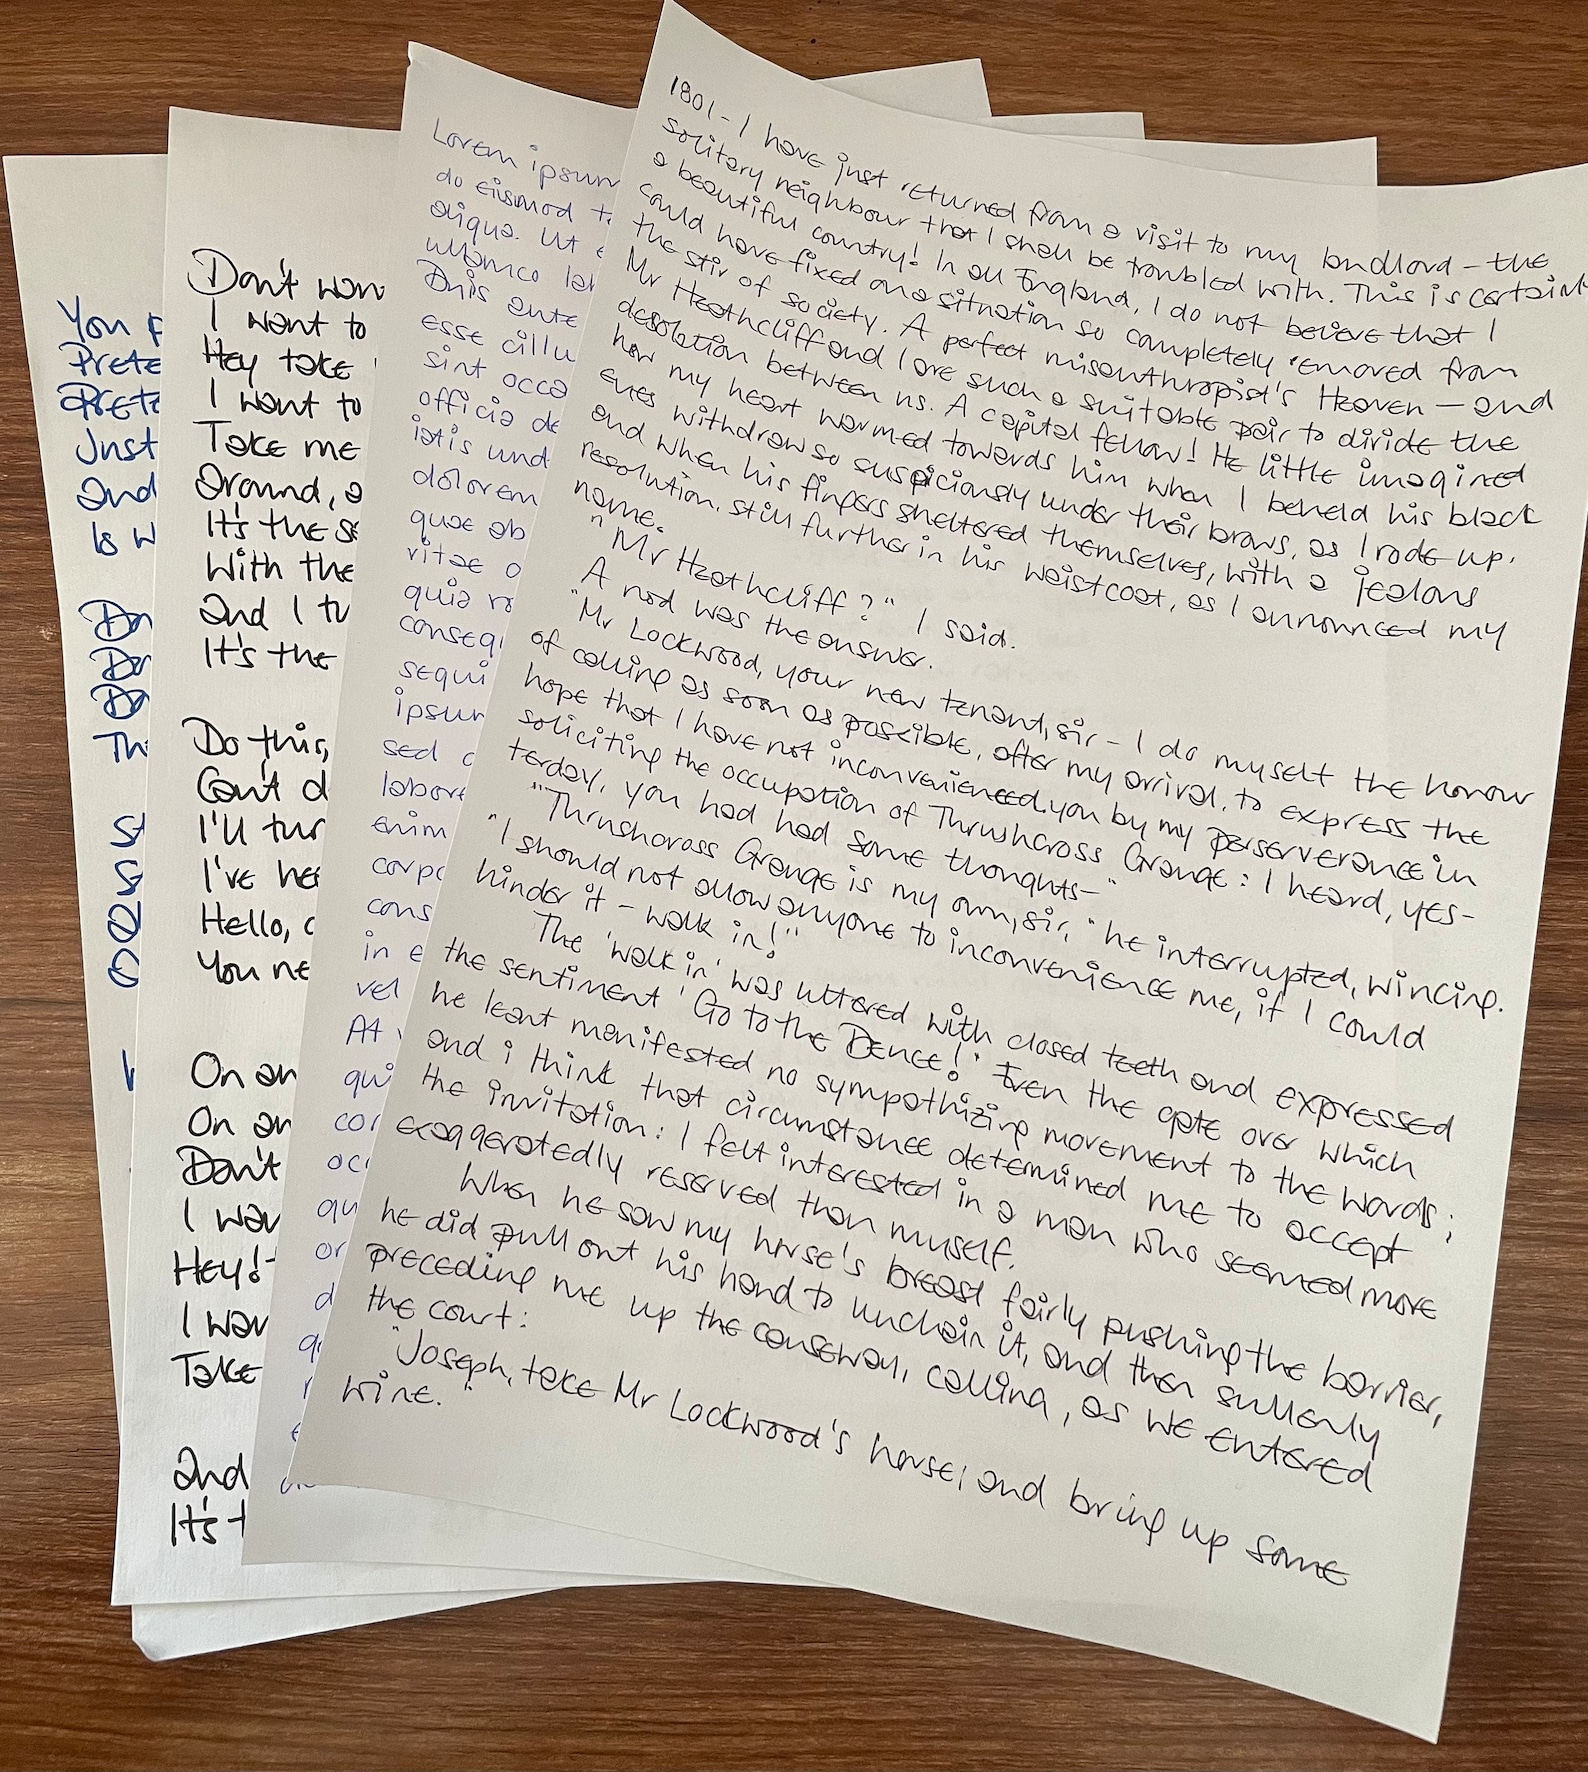 You
Prete
Preto
Just
and
Is w
Do
Do
Do
Thi
St
Don't wan
I want to
Hey take
I want to
Take me
around, a
It's the se
With the
and I tu
It's the
Do this,
Can't d
I'll tur
I've hea
Hello, c
You ne
On an
On an
Don't
I wan
Hey!
I wan
Take
and
It's t
Lorem ipsum
do eismod te
aliqua. Ut e
ullamco lab
Duis ante
esse cillu
sint occa
officia de
iatis und
dolorem
quae ab
vitae
quia
consequ
sequi
ipsum
sed
labore
enim
corpo
cons
in e
vel
At
qui
cor
occ
qu
or
d
1801 - I have just returned from a visit to my landlord - the
solitary neighbour that I shall be troubled with. This is certainl
a beautiful country! In all England, I do not believe that I
could have fixed on a situation so completely removed from
the stir of society. A perfect misanthropist's Heaven - and
Mr Heathcliff and I are such a suitable pair to divide the
desolation between us. A capital fellow! He little imagined
how my heart warmed towards him when I beheld his black
eyes withdraw so suspiciously under their brows, as I rode up.
and when his fingers sheltered themselves, with a jealous
resolution, still further in his waistcoat, as I announced my
name.
"Mr Heathcliff?" I said.
A nod was the answer.
"Mr Lockwood, your new tenant, sir - I do myself the honour
of calling as soon as possible, after my arrival, to express the
hope that I have not inconvenienced you by my perserverance in
soliciting the occupation of Thrushcross Grange: I heard, yes-
terday, you had had some thoughts-"
"Thrushcross Grange is my own, sir," he interrupted, wincing.
"I should not allow anyone to inconvenience me, if I could
hinder it - walk in!"
The 'walk in' was uttered with closed teeth and expressed
the sentiment 'Go to the Deuce!' Even the gate over which
he leant manifested no sympathizing movement to the words;
and i think that circumstance determined me to accept
the invitation: I felt interested in a man who seemed more
exaggeratedly reserved than myself.
When he saw my horse's breast fairly pushing the barrier,
he did pull out his hand to unchain it, and then sullenly
preceding me up the causeway, calling, as we entered
the court:
"Joseph, take Mr Lockwood's horse; and bring up some
wine."